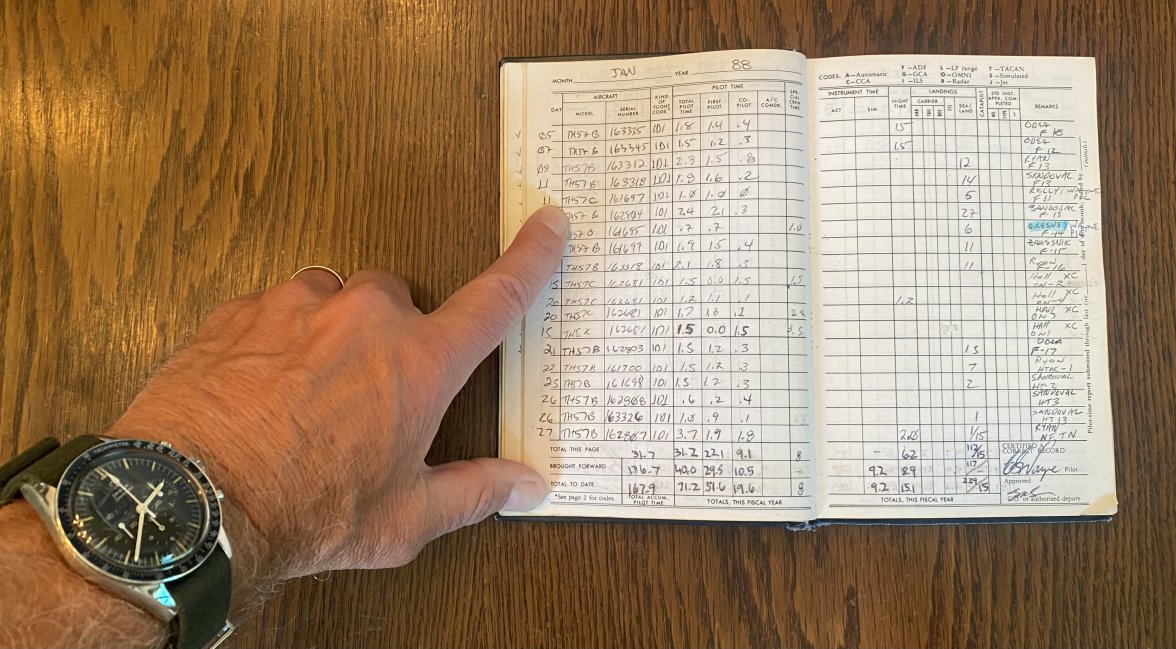 MONTH JAN YEAR 88
PILOT TIME
AIRCRAFT
DAY MODEL SERIAL NUMBER KIND OF FLIGHT CODE* TOTAL PILOT TIME FIRST PILOT CO-PILOT A/C COMDR. SPECIAL CREW TIME
05 TH57B 163335 1D1 1.8 1.4 .4
07 TH57B 163345 1D1 1.5 1.2 .3
09 TH57B 163312 1D1 2.3 1.5 .8
11 TH57B 163318 1D1 1.8 1.6 .2
11 TH57C 161697 1D1 1.0 1.0 0
TH57B 162804 1D1 2.4 2.1 .3
161695 1D1 .7 .7 1.0
TH57B 161699 1D1 1.9 1.5 .4
TH57B 163318 1D1 2.1 1.8 .3
15 TH57C 162681 1D1 1.5 0.0 1.5 1.5
20 TH57C 162681 1D1 1.2 1.1 .1
20 TH57C 162681 1D1 1.7 1.6 .1
15 162681 1D1 1.5 0.0 1.5 3.5
21 TH57B 162803 1D1 1.5 1.2 .3
22 TH57B 161700 1D1 1.5 1.2 .3
25 TH57B 161698 1D1 1.5 1.2 .3
26 TH57B 162808 1D1 .6 .2 .4
26 TH57B 163326 1D1 1.0 .9 .1
27 TH57B 162807 1D1 3.7 1.9 1.8
TOTAL THIS PAGE 31.7 31.2 22.1 9.1 8
BROUGHT FORWARD 136.7 40.0 29.5 10.5 -
TOTAL TO DATE 167.9 71.2 51.6 19.6 8
*See page 2 for codes. TOTAL ACCUM. PILOT TIME TOTALS, THIS FISCAL YEAR
CODES: A—Automatic F—ADF L—LF range T—TACAN
C—CCA G—GCA O—OMNI S—Simulated
I—ILS R—Radar J—Jet
INSTRUMENT TIME NIGHT TIME LANDINGS CATAPULT STD INST. APPR. COMPLETED REMARKS
ACT SIM CARRIER SEA/LAND
ARR T&G BOL NO. TYPE
1.5 ODEA
F-18
1.5 ODEA
F-12
12 RYAN
F13
14 SANDOVAL
F13
5 KELLY, WAYNE
F11
27 SANDOVAL
F-13
6 GREENE/WAYNE
F-14
11 ZAUSSUIK
F-15
11 RYAN
F-16
Hall XC
ON-2
1.2 Hall XC
HALL XC
ON3
HALL XC
ON1
15 ODEA
F-17
7 Ryan
HTAC-1
2 SANDOVAL
HT-2
SANDOVAL
HT3
1 SANDOVAL
HT13
2.0 1/15 RYAN
- 6.2 112/15 CERTIFIED A CORRECT RECORD
9.2 8.9 117/- Wayne Pilot
9.2 15.1 229/15 Approved
TOTALS, THIS FISCAL YEAR C.O. or authorized deputy
Pilot-time report submitted through last (or day of the month) noted by (initials)